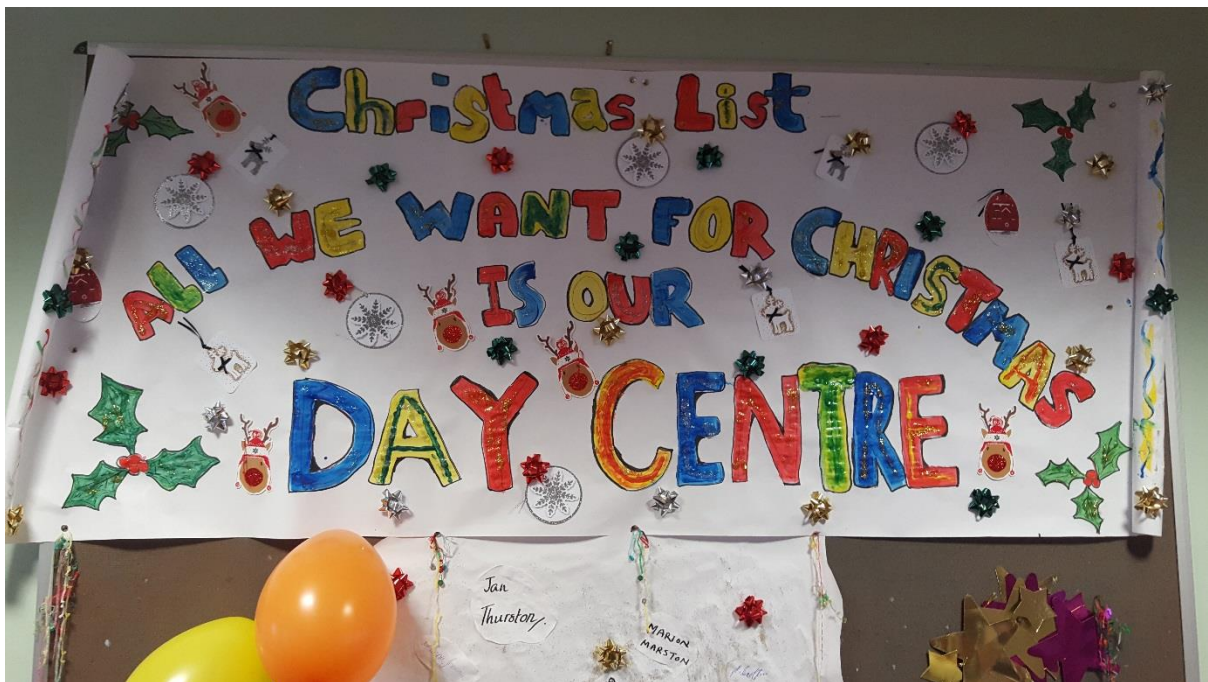 Christmas List
ALL WE WANT FOR CHRISTMAS
IS OUR
DAY CENTRE
Jan
Thurston,
MARION
MARSTON